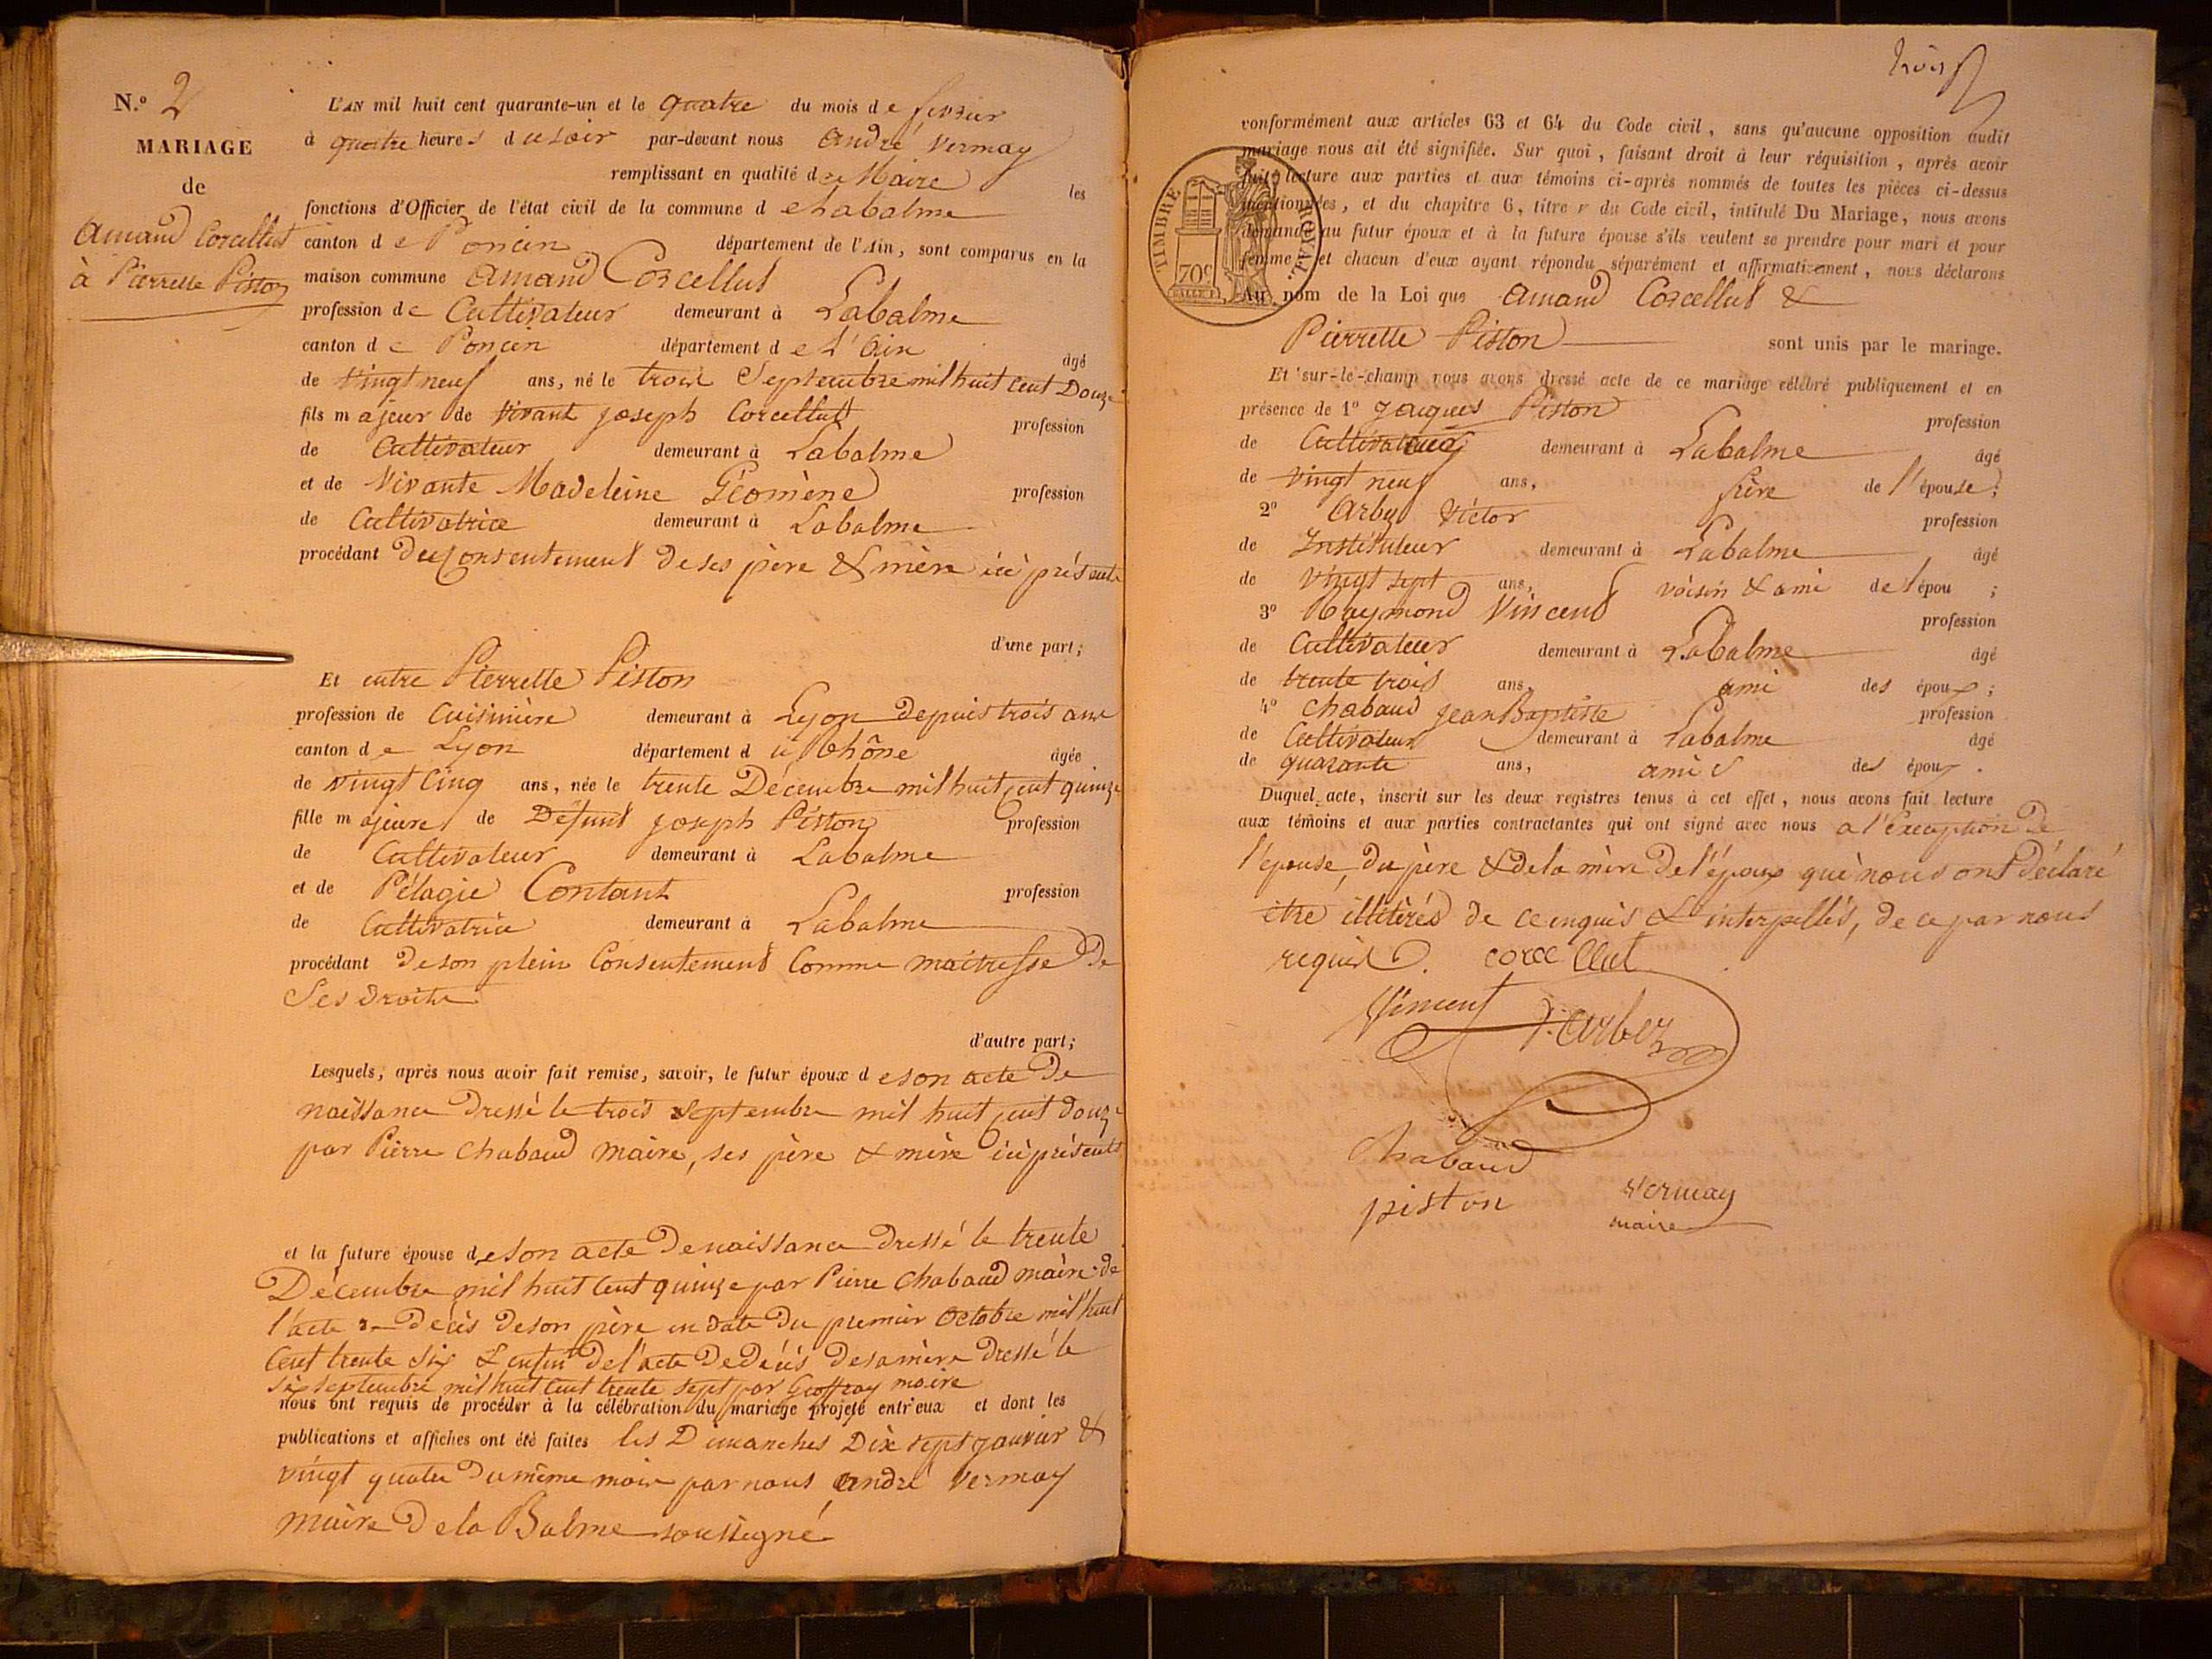 N.º 2
MARIAGE
de
Amand Corcellut
à Pierrette Piston
L'AN mil huit cent quarante-un et le quatre du mois de fevrier
à quatre heures du soir par-devant nous André Vermay
remplissant en qualité de Maire les
fonctions d'Officier de l'état civil de la commune de Labalme
canton de Poncin département de l'Ain, sont comparus en la
maison commune Amand Corcellut
profession de Cultivateur demeurant à Labalme
canton de Poncin département de L'Ain âgé
de vingt neuf ans, né le trois Septembre mil huit cent Douze
fils majeur de vivant joseph Corcellut profession
de Cultivateur demeurant à Labalme
et de Vivante Madeleine Géomène profession
de Cultivatrice demeurant à Labalme
procédant du Consentement de ses père & mère ici présents
d'une part;
Et entre Pierrette Piston
profession de Cuisinière demeurant à Lyon depuis trois ans
canton de Lyon département du Rhône âgée
de vingt Cinq ans, née le trente Décembre mil huit cent quinze
fille majeure de Défunt joseph Piston profession
de Cultivateur demeurant à Labalme
et de Pélagie Contant profession
de Cultivatrice demeurant à Labalme
procédant de son plein Consentement Comme maitresse de
Ses Droits
d'autre part;
Lesquels, après nous avoir fait remise, savoir, le futur époux de son acte De
naissance Dressé le trois Septembre mil huit cent douze
par Pierre Chabaud Maire, ses père & mère ici présents
et la future épouse de son acte De naissance Dressé le trente
Décembre mil huit Cent quinze par Pierre Chabaud maire de
l'acte de Décès de son père en Date Du premier Octobre mil huit
Cent trente Six & enfin de l'acte De Décès de sa mère Dressé le
Six Septembre mil huit Cent trente sept par Geoffray maire
nous ont requis de procéder à la célébration du mariage projeté entr'eux et dont les
publications et affiches ont été faites les Dimanches Dix sept janvier &
vingt quatre Du même mois par nous André Vermay
maire De la Balme soussigné
trois
conformément aux articles 63 et 64 du Code civil, sans qu'aucune opposition audit
mariage nous ait été signifiée. Sur quoi, faisant droit à leur réquisition, après avoir
fait lecture aux parties et aux témoins ci-après nommés de toutes les pièces ci-dessus
mentionnées, et du chapitre 6, titre v du Code civil, intitulé Du Mariage, nous avons
demandé au futur époux et à la future épouse s'ils veulent se prendre pour mari et pour
femme, et chacun d'eux ayant répondu séparément et affirmativement, nous déclarons
Au nom de la Loi que Amand Corcellut &
TIMBRE ROYAL
70c
Pierrette Piston sont unis par le mariage.
Et sur-le-champ nous avons dressé acte de ce mariage célébré publiquement et en
présence de 1º Jacques Piston profession
de Cultivateur demeurant à Labalme âgé
de vingt neuf ans, frère de l'épouse;
2º Arbey Victor profession
de Instituteur demeurant à Labalme âgé
de vingt sept ans, voisin & ami de l'épou ;
3º Raymond Vincent profession
de Cultivateur demeurant à Labalme âgé
de trente trois ans, ami des époux;
4º Chabaud Jean Baptiste profession
de Cultivateur demeurant à Labalme âgé
de quarante ans, amis des époux.
Duquel acte, inscrit sur les deux registres tenus à cet effet, nous avons fait lecture
aux témoins et aux parties contractantes qui ont signé avec nous a l'Exception De
l'épouse, Du père & de la mère De l'époux qui nous ont Déclaré
être illitérés de ce enquis & interpellés, de ce par nous
requis. corcellut
Vincent V. Arbey
Chabaud
piston Vermay
maire